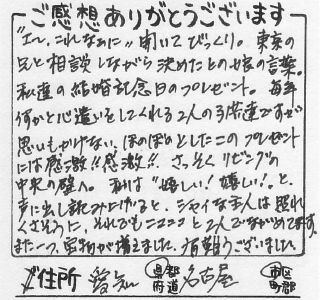 ご感想ありがとうございます
"エ〜、これなぁに" 開いてびっくり。東京の
兄と相談しながら決めたとの娘の言葉。
私達の結婚記念日のプレゼント。毎年
何かと心遣いをしてくれる2人の子供達ですが
思いもかけない、ほのぼのとしたこのプレゼント
には感激!!感激!! さっそくリビングの
中央の壁へ。私は"嬉しい!嬉しい!"と、
声に出し読み上げると、シャイな主人は照れ
くさそうに、それでもニコニコと2人でながめてます。
また一つ、宝物が増えました。有難うございました。
ご住所 愛知 都道府県 名古屋 市区町郡